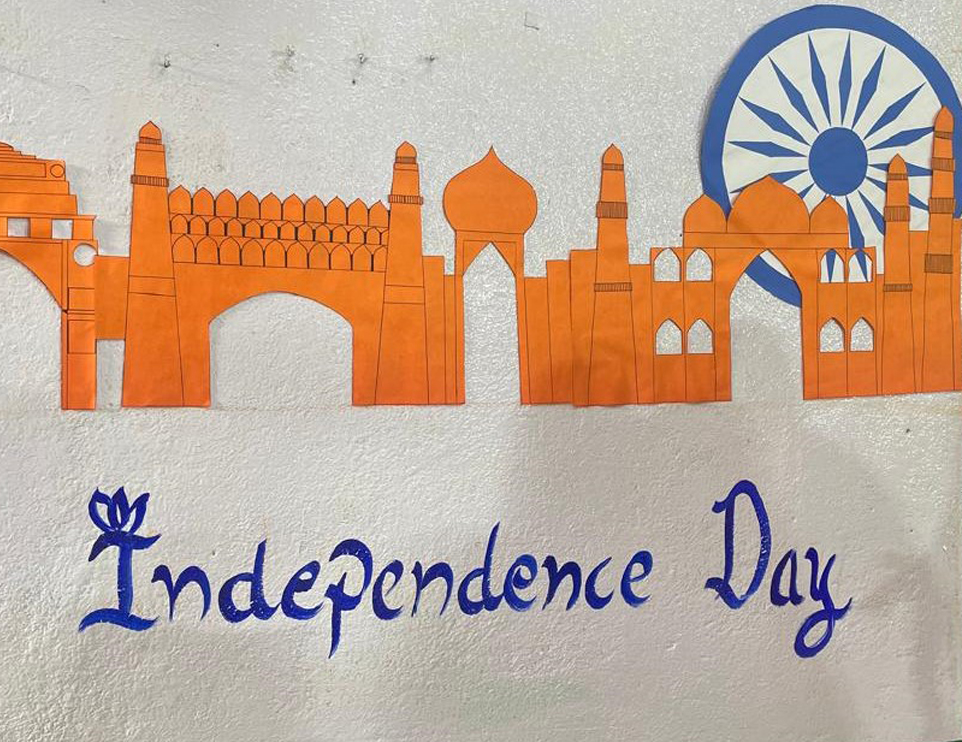 Independence Day